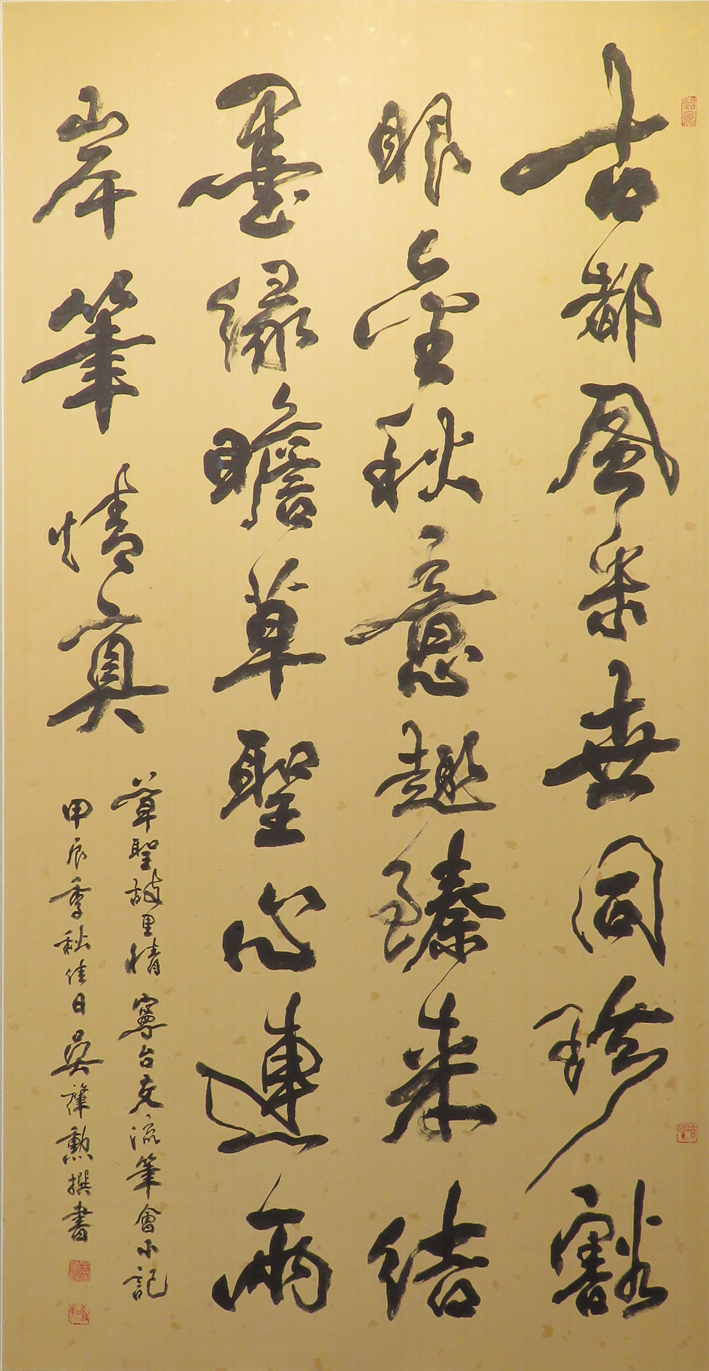 古都風采世同珍豁
眼金秋意趣臻来結
墨緣瞻草聖心連兩
岸筆情真
草聖故里情寧台交流筆會小記
甲辰季秋佳日吳肇勳撰書